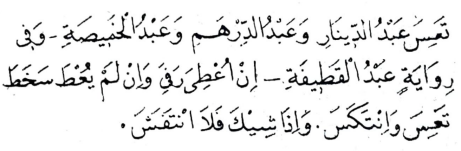 تَعِسَ عَبْدُ الدِّينَارِ وَعَبْدُ الدِّرْهَمِ وَعَبْدُ الْخَمِيصَةِ - وَفِى
رِوَايَةٍ عَبْدُ الْقَطِيفَةِ - اِنْ اُعْطِىَ رَضِىَ وَاِنْ لَمْ يُعْطَ سَخَطَ
تَعِسَ وَانْتَكَسَ. وَاِذَا شِيْكَ فَلَا انْتَقَشَ.